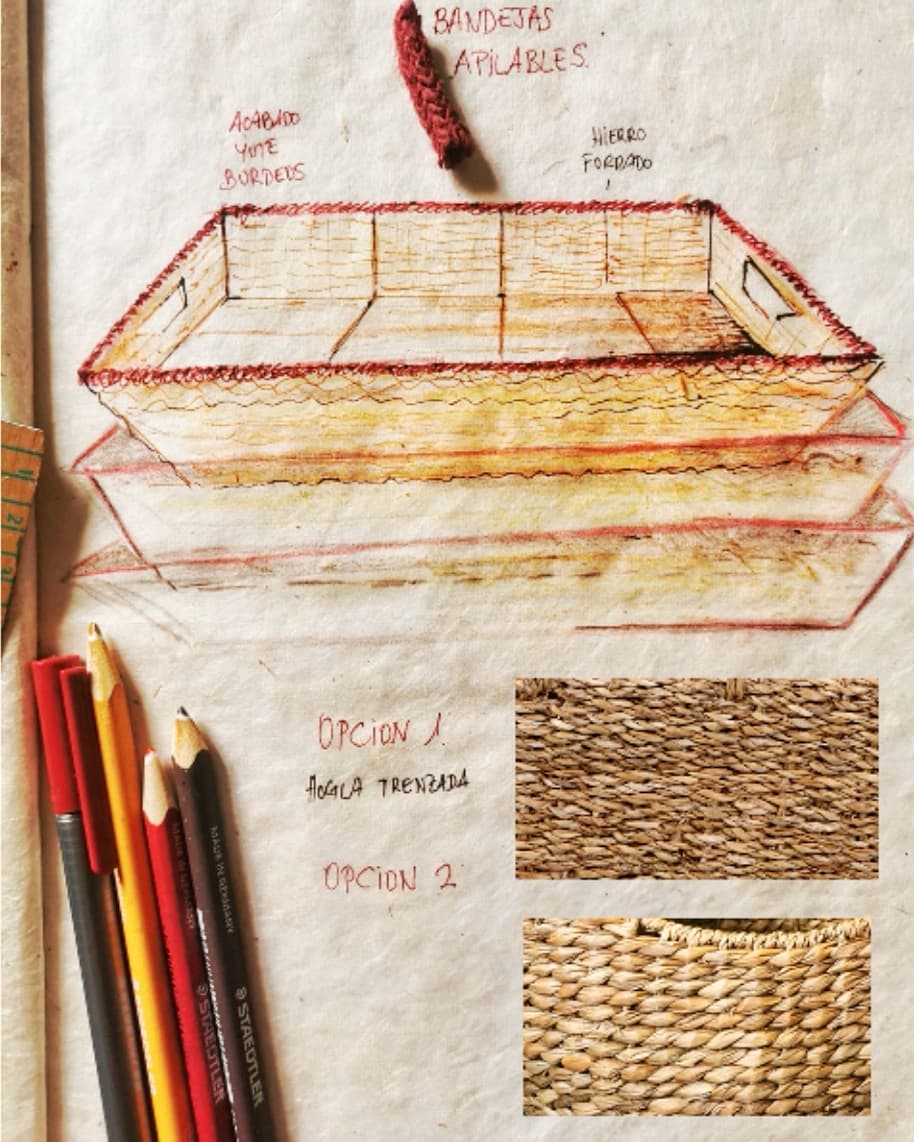 BANDEJAS
APILABLES.
ACABADO
YUTE
BURDEOS
HIERRO
FORJADO
OPCION 1.
HOGLA TRENZADA
OPCION 2
MADE IN GERMANY
MADE IN GERMANY
STAEDTLER
STAEDTLER
2